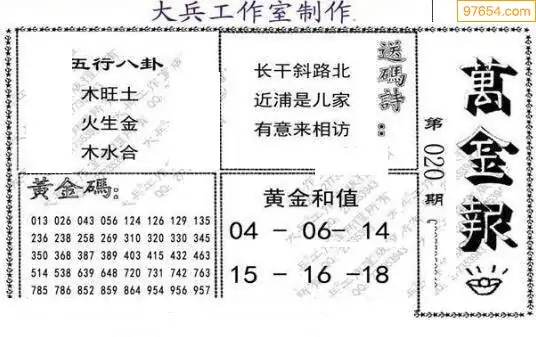 大兵工作室制作
97654.com
萬金報
第020期
五行八卦
木旺土
火生金
木水合
送碼詩：
长干斜路北
近浦是儿家
有意来相访
黄金碼：
013 026 043 056 124 126 129 135
236 238 258 269 310 320 330 345
350 368 387 389 403 415 432 463
514 538 639 648 720 731 742 763
785 786 852 859 864 954 956 957
黄金和值
04 - 06- 14
15 - 16 -18